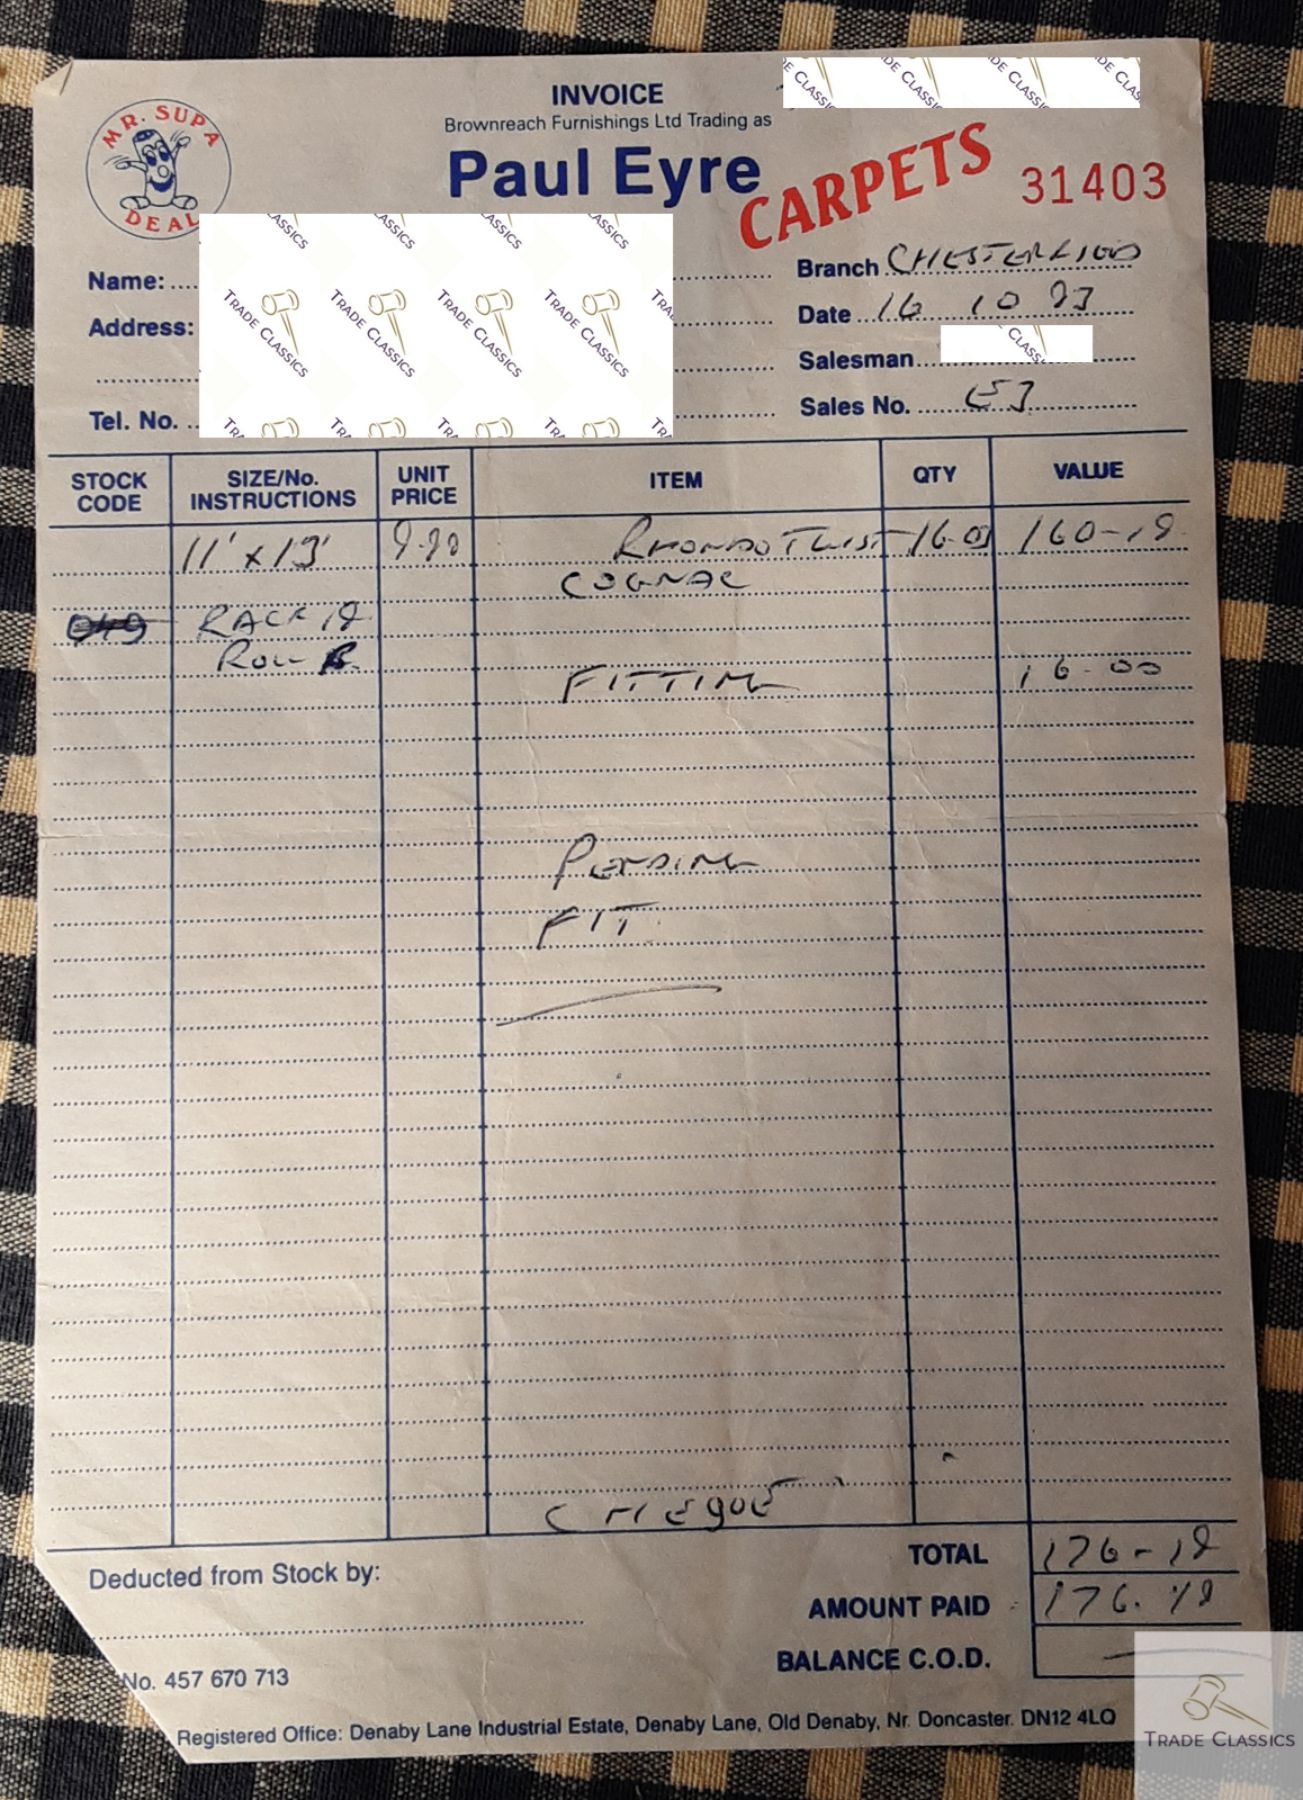 INVOICE
Brownreach Furnishings Ltd Trading as
MR. SUPA DEAL
Paul Eyre CARPETS 31403
Name:
Branch CHESTERFIELD
Address:
Date 16 10 93
Salesman
Tel. No.
Sales No.
STOCK CODE SIZE/No. INSTRUCTIONS UNIT PRICE ITEM QTY VALUE
11' x 13' 9.90 RHONDO TWIST 160-18
COGNAC
RACK 18
ROLL
FITTING 16-00
PENDING
FIT
CHEQUE
TOTAL 176-18
Deducted from Stock by:
AMOUNT PAID 176.18
BALANCE C.O.D. —
No. 457 670 713
Registered Office: Denaby Lane Industrial Estate, Denaby Lane, Old Denaby, Nr. Doncaster. DN12 4LQ
TRADE CLASSICS